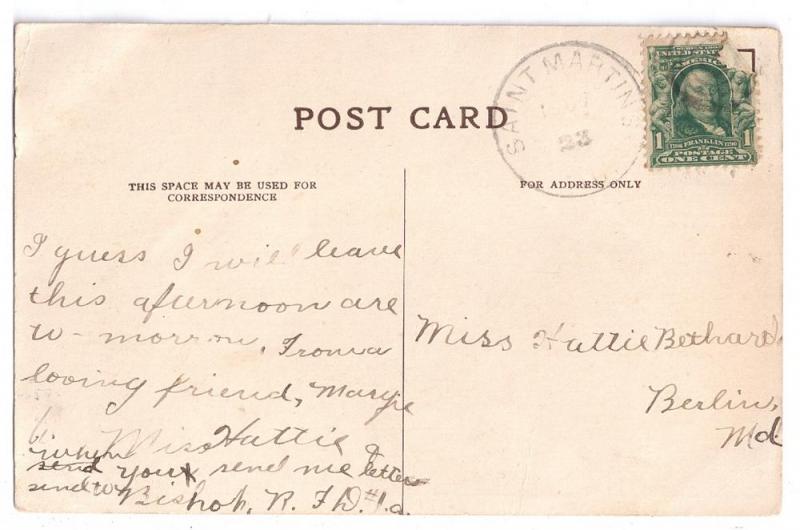 POST CARD
SAINT MARTINS
23
SERIES 1902
UNITED STATES
AMERICA
1 1706 FRANKLIN 1790 1
POSTAGE
ONE CENT
THIS SPACE MAY BE USED FOR
CORRESPONDENCE
I guess I will leave
this afternoon are
to-morrow. From a
loving friend, Margie
Miss Hattie
when
send you send me letter
send to Bishop, R.F.D. #1.a.
FOR ADDRESS ONLY
Miss Hattie Bethard
Berlin,
Md